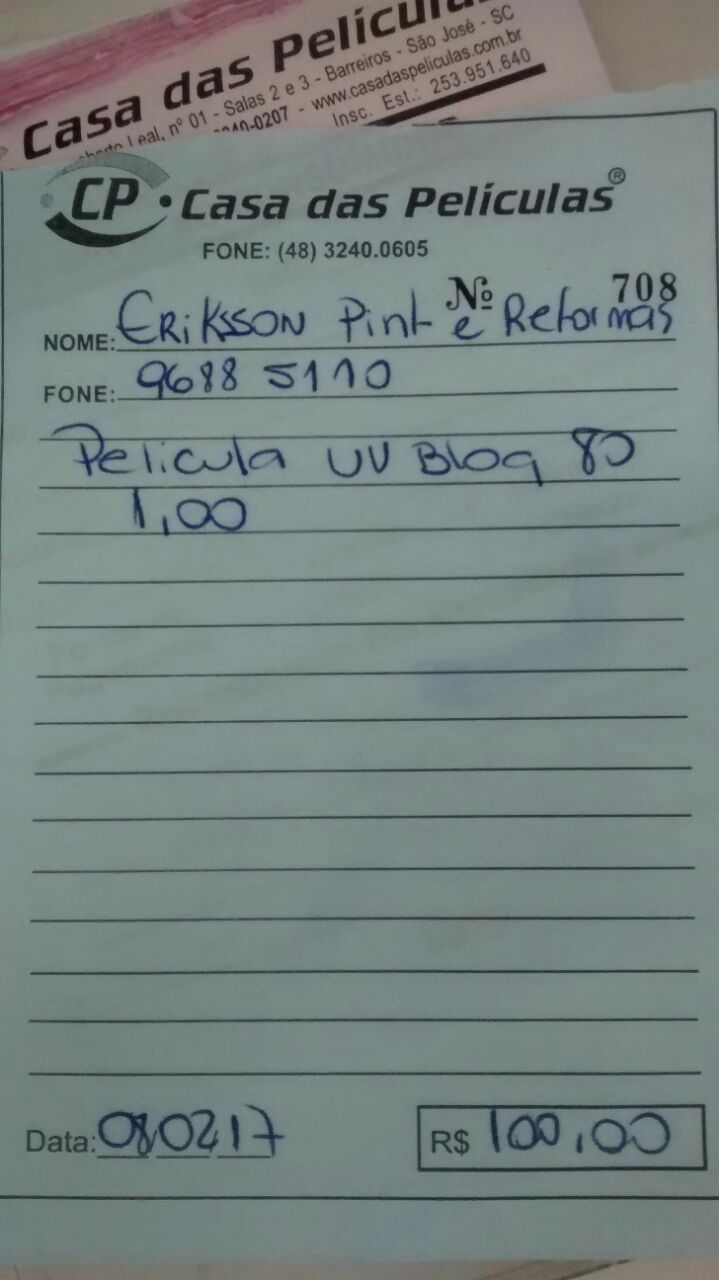 Casa das Películas
Leal, nº 01 - Salas 2 e 3 - Barreiros - São José - SC
-0207 - www.casadaspeliculas.com.br
Insc. Est.: 253.951.640
CP Casa das Películas®
FONE: (48) 3240.0605
Nº 708
NOME: ERIKSSON Pint e Reformas
FONE: 9688 5110
Pelicula UV Bloq 80
1,00
Data: 08 02 17
R$ 100,00